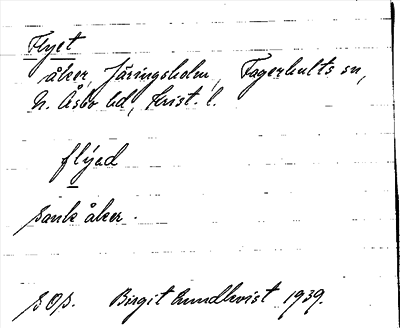 Flyet
åker, Järingsholm, Fagerhults sn,
N. Åsbo hd, Krist. l.
flýad
sank åker.
S.O.S. Birgit Lundkvist 1939.